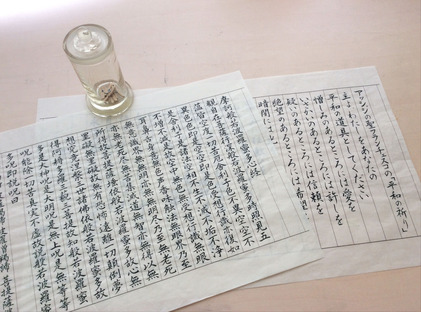 アシジの聖フランチェスコの「平和の祈り」
主よわたしをあなたの
平和の道具としてください
憎しみのあるところには愛を
あるところには許しを
あるところには信頼を
絶望のあるところには希望
摩訶般若波羅蜜多心経
観自在菩薩行深般若波羅蜜多時照見五
蘊皆空度一切苦厄舎利子色不異空空不
異色色即是空空即是色受想行識亦復如
是舎利子是諸法空相不生不滅不垢不浄
不増不減是故空中無色無受想行識無眼
耳鼻舌身意無色声香味触法無眼界乃至
無意識界無無明亦無無明尽乃至無老死
亦無老死尽無苦集滅道無智亦無得以無
所得故菩提薩埵依般若波羅蜜多故心無
罣礙無罣礙故無有恐怖遠離一切顛倒夢
想究竟涅槃三世諸仏依般若波羅蜜多故
得阿耨多羅三藐三菩提故知般若波羅蜜
多是大神呪是大明呪是無上呪是無等等
呪能除一切苦真実不虚故説般若波羅蜜
多呪即説呪曰